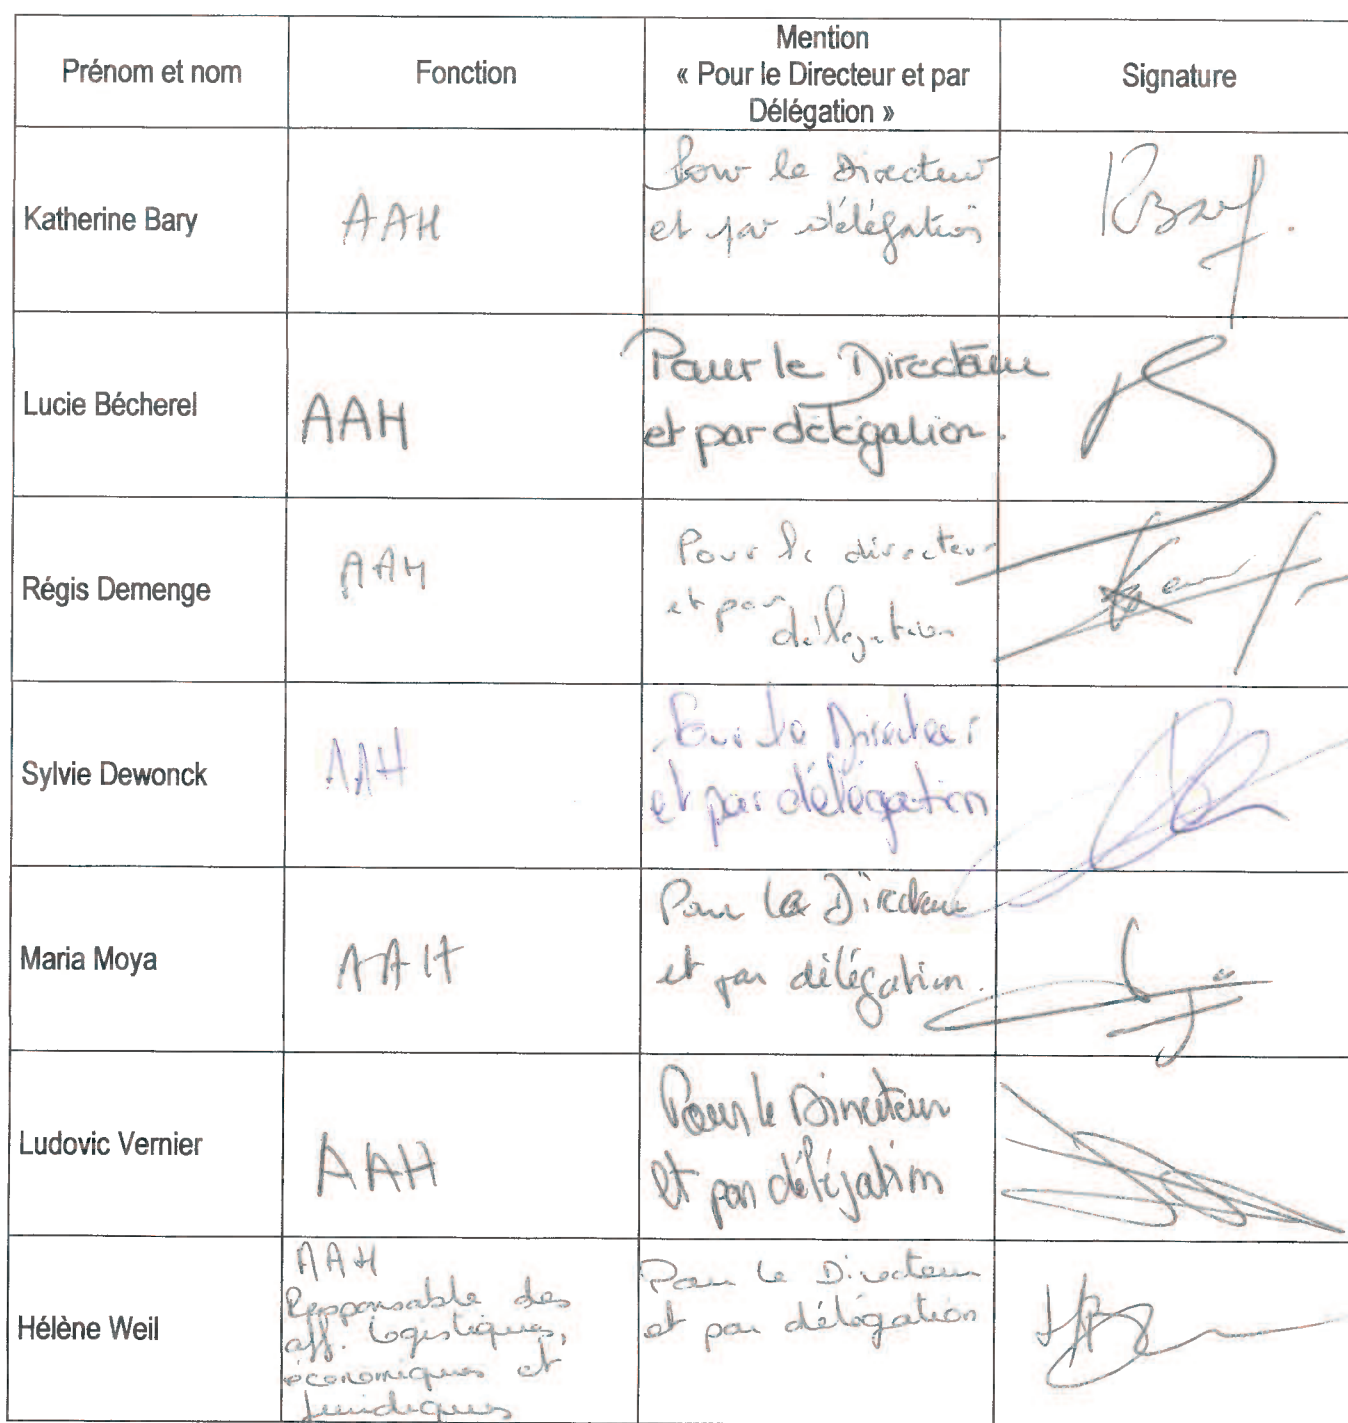 Prénom et nom
Fonction
Mention
« Pour le Directeur et par
Délégation »
Signature
Katherine Bary
AAH
Pour le Directeur
et par délégation
KBary.
Lucie Bécherel
AAH
Pour le Directeur
et par délégation.
Régis Demenge
AAH
Pour le directeur
et par
délégation
Sylvie Dewonck
AAH
Pour le Directeur
et par délégation
Maria Moya
AAH
Pour le Directeur
et par délégation.
Ludovic Vernier
AAH
Pour le Directeur
et par délégation
Hélène Weil
AAH
Responsable des
aff. logistiques,
économiques et
juridiques
Pour le Directeur
et par délégation